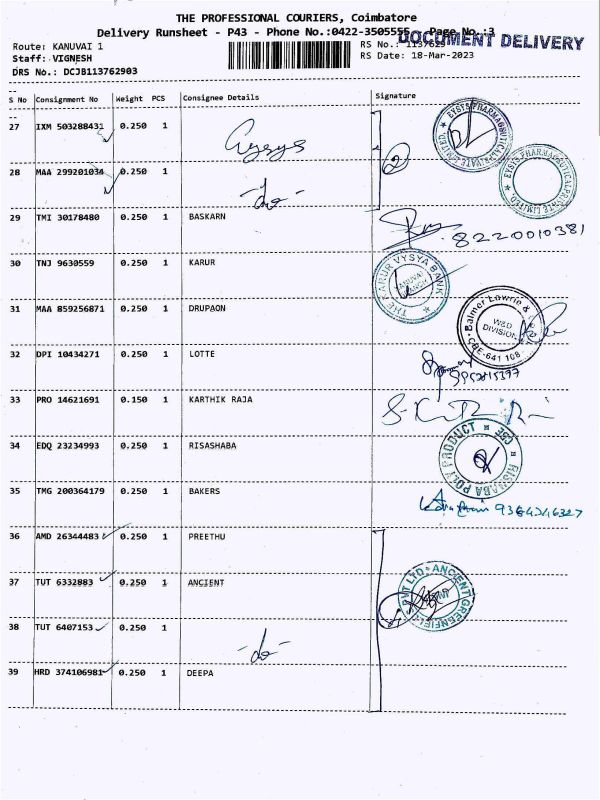 THE PROFESSIONAL COURIERS, Coimbatore
Delivery Runsheet - P43 - Phone No.:0422-3505555 Page No.:3
DOCUMENT DELIVERY
Route: KANUVAI 1
RS No.: 1137629
Staff: VIGNESH
RS Date: 18-Mar-2023
DRS No.: DCJB113762903
S No Consignment No Weight PCS Consignee Details Signature
27 IXM 503288431 0.250 1
EYSYS PHARMACEUTICAL PRIVATE LIMITED.
28 MAA 299201034 0.250 1 -do-
EYSYS PHARMACEUTICAL PRIVATE LIMITED.
29 TMI 30178480 0.250 1 BASKARN
8220010381
30 TNJ 9630559 0.250 1 KARUR
THE KARUR VYSYA BANK
31 MAA 859256871 0.250 1 DRUPAON
Balmer Lawrie &
W&D
DIVISION
CBE-641 108
32 DPI 10434271 0.250 1 LOTTE
33 PRO 14621691 0.150 1 KARTHIK RAJA
34 EDQ 23234993 0.250 1 RISASHABA
RISHABA POLY PRODUCT CBE
35 TMG 200364179 0.250 1 BAKERS
36 AMD 26344483 0.250 1 PREETHU
37 TUT 6332883 0.250 1 ANCIENT
ANCIENT GREENFIELD PVT LTD
38 TUT 6407153 0.250 1 -do-
39 HRD 374106981 0.250 1 DEEPA